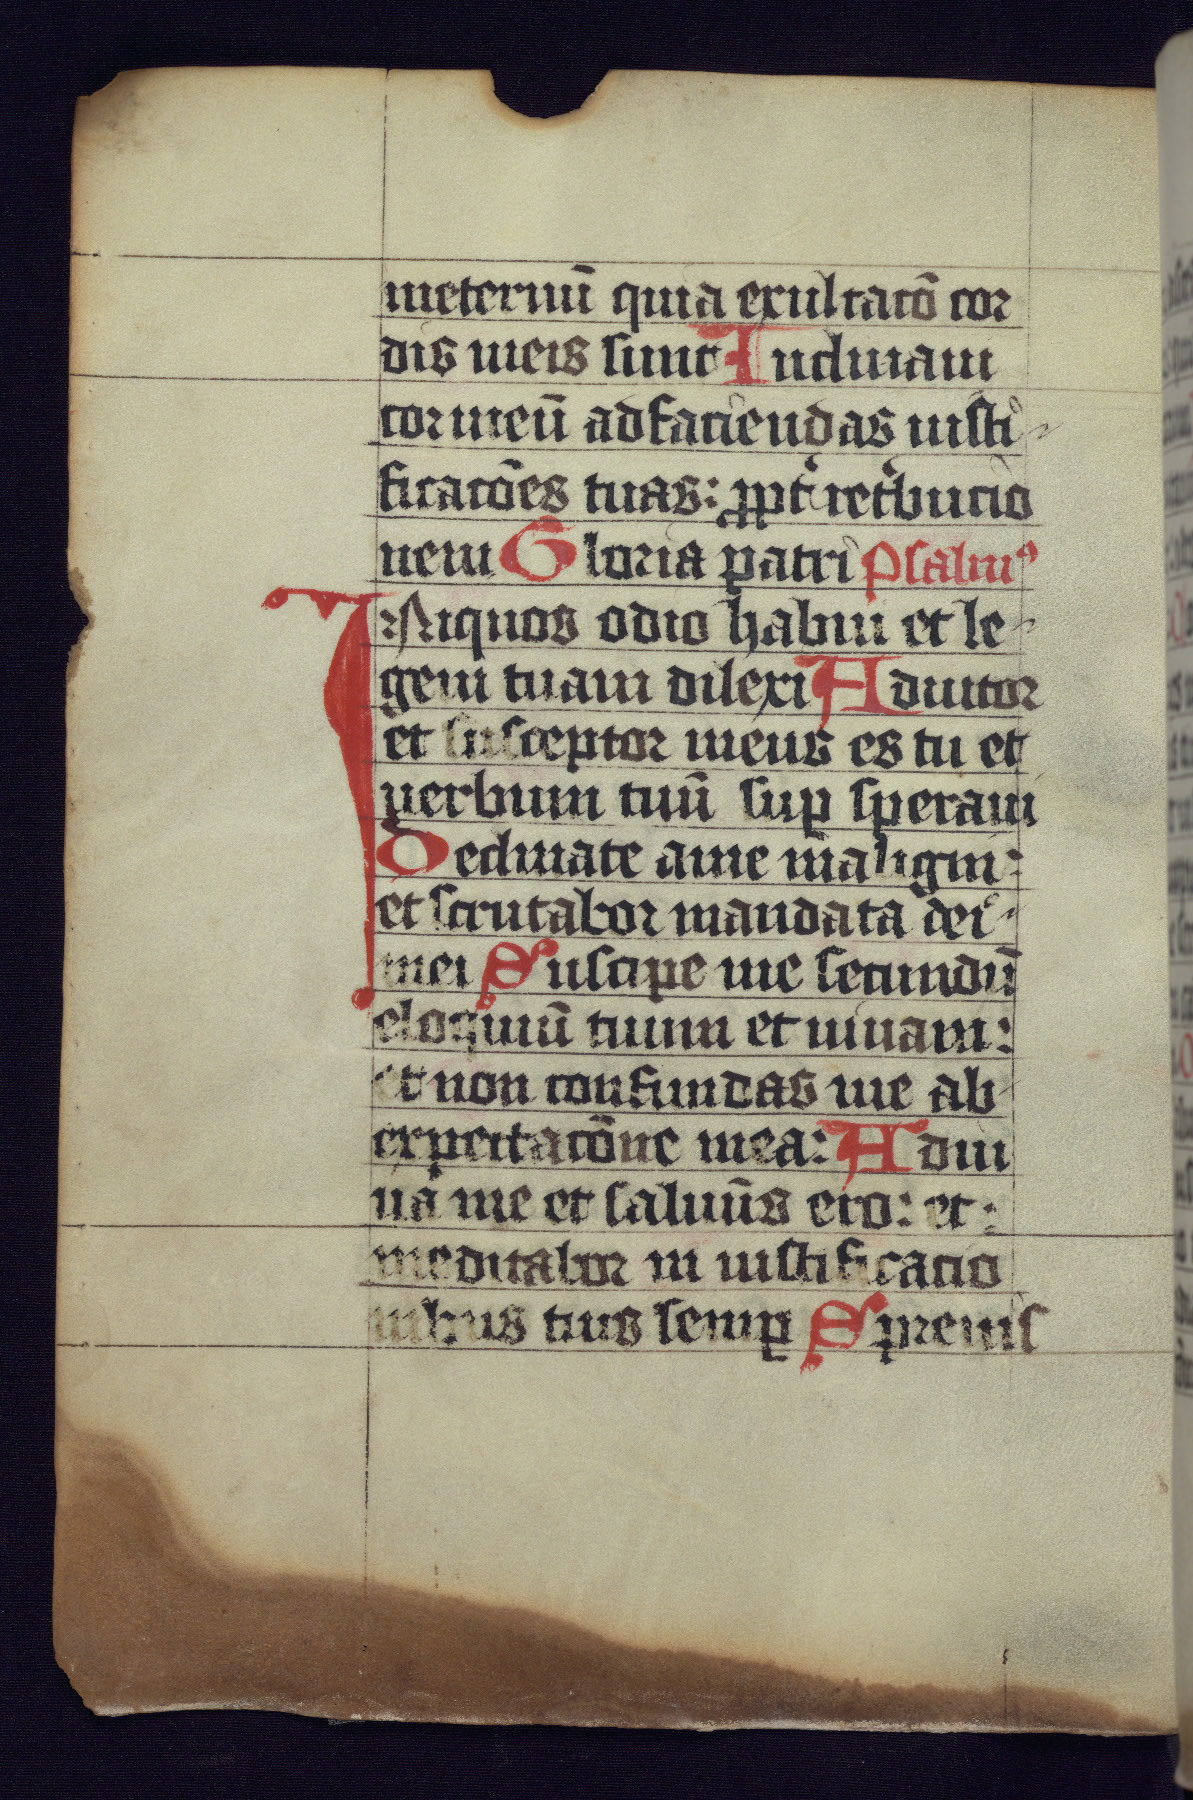 ineternū quia exultacō cor
dis meis sunt Inclinaui
cor meū ad faciendas iusti
ficacōes tuas: ꝓpt retbucio
nem Gloria patri Psalmꝰ
INiquos odio habui et le
gem tuam dilexi Adiutor
et susceptor meus es tu et
uerbum tuū suꝑ speraui
Declinate ame maligni:
et scrutabor mandata dei
mei Suscipe me secundū
eloquiū tuum et uiuam:
et non confundas me ab
expectacōne mea: Adiu
ua me et saluūs ero: et:
meditabor in iustificacio
nibus tuis semꝑ Spreuis